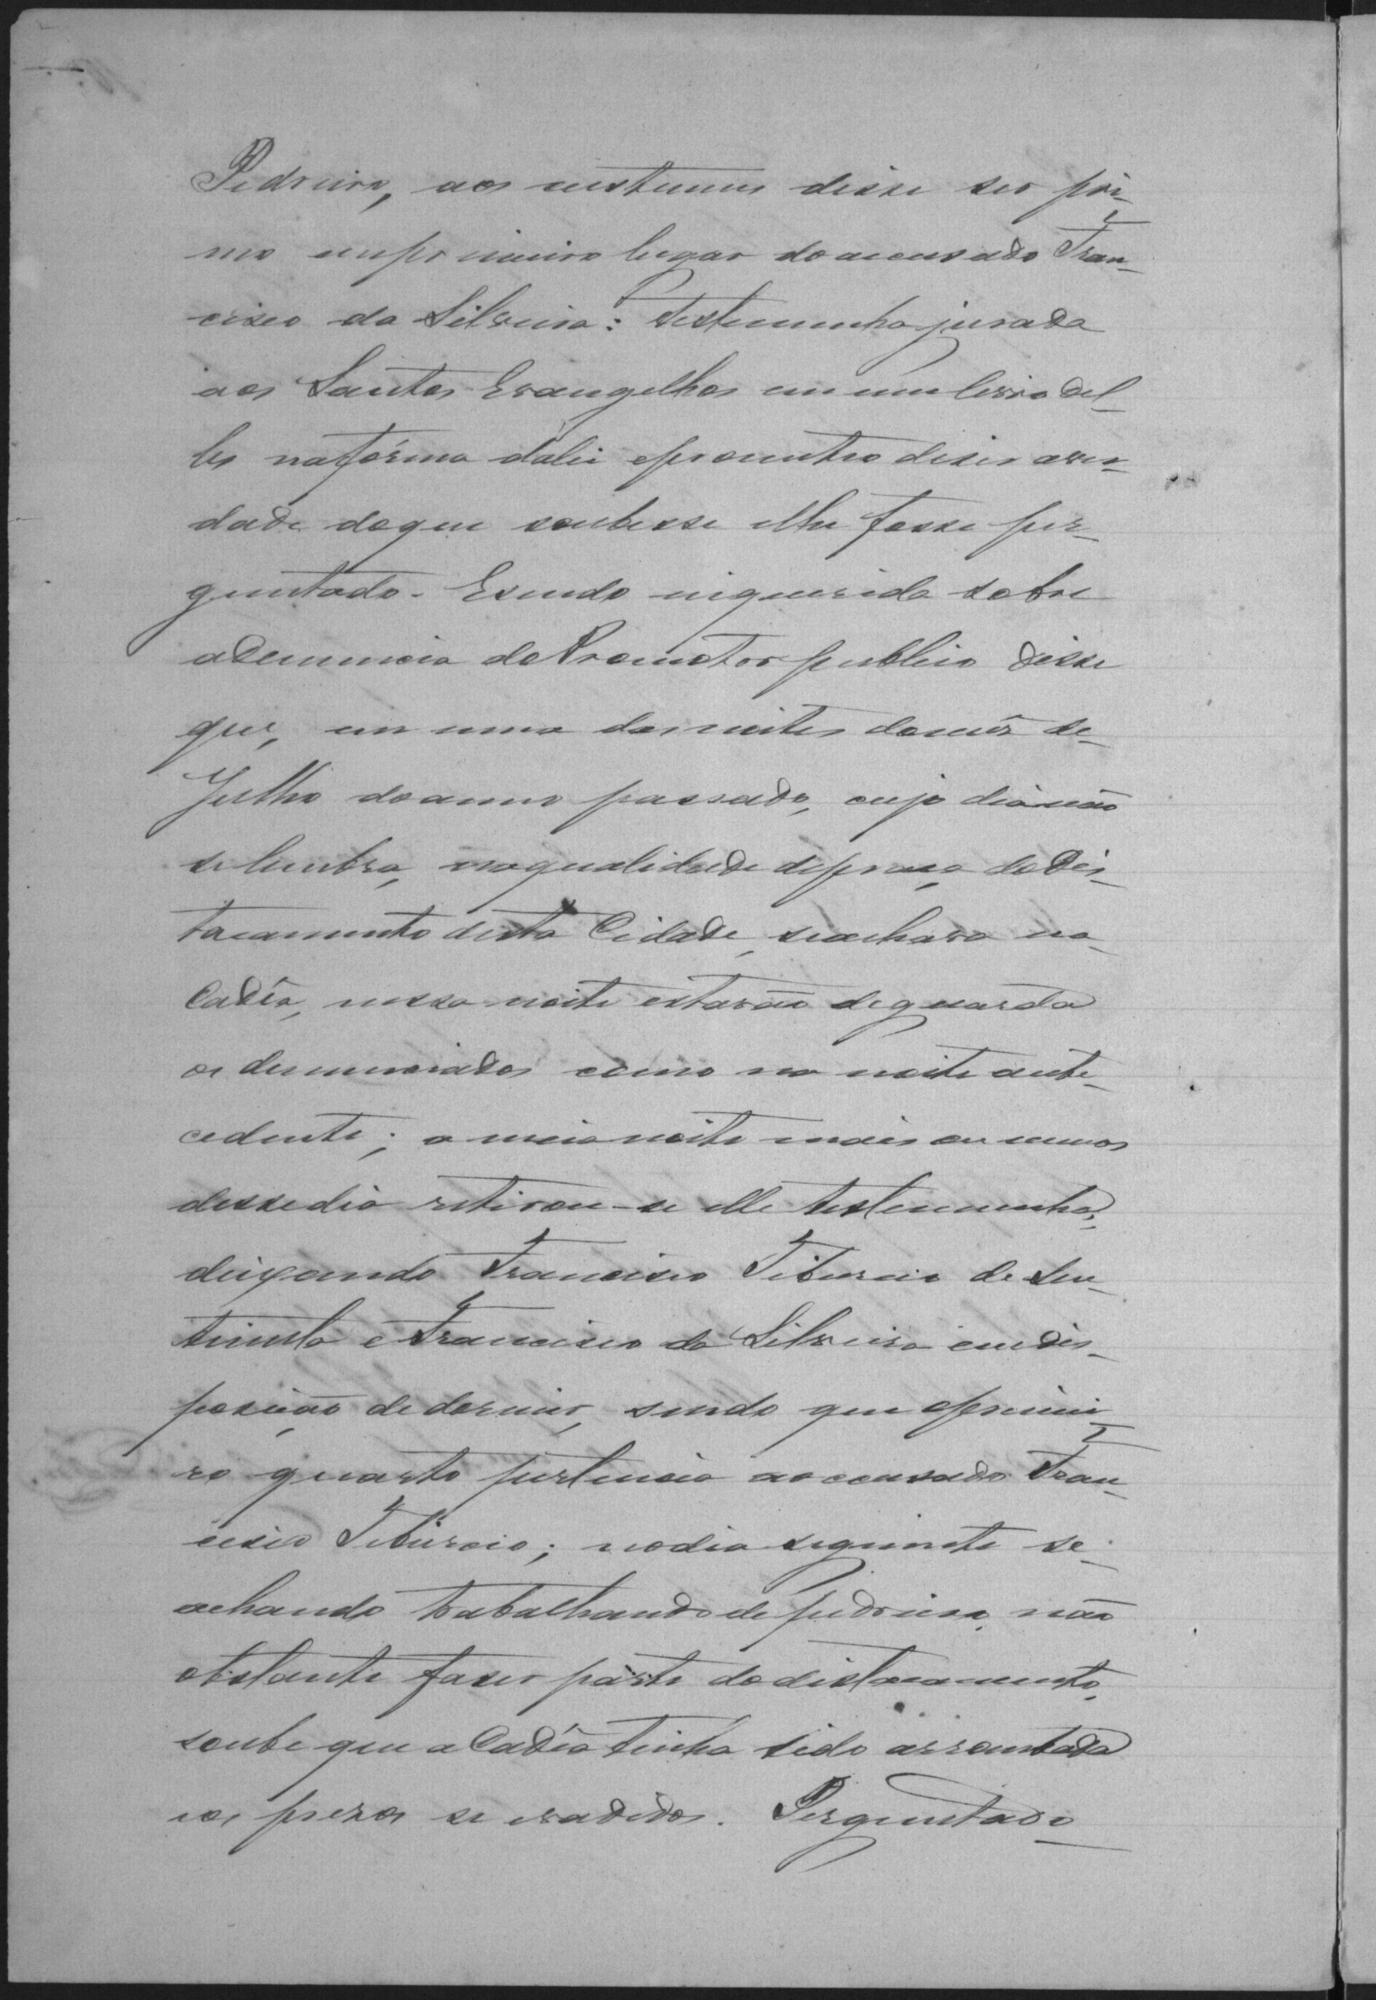 Pedreiro, aos custumes disse ser pri-
mo em primeiro lugar do accusado Fran-
cisco da Silveira: testemunha jurada
aos Santos Evangelhos em um livro del-
les na fórma dalei eprometteo diser aver-
dade doque soubesse elhe fosse per-
guntado. Esendo inquerida sobre
adenuncia do Promotor publico disse
que, em uma das noites domês de
Julho do anno passado, cujo dia não
se lembra, na qualidade de praça do Des-
tacamento desta Cidade, seachava na
Cadêa, nessa noite estavão deguarda
os denunciados como na noite ante-
cedente; a meia noite mais ou menos
dessedia retirou-se elle testemunha,
deixando Francisco Tiburcio de Sen-
tinella e Francisco da Silveira emdis-
posição de dormir, sendo que oprimei-
ro quarto pertencia ao accusado Fran-
cisco Tiburcio; nodia seguinte se
achando trabalhando de pedreiro, não
obstante faser parte do destacamento,
soube que a Cadêa tinha sido arrombada
eos presos se evadidos. Perguntado